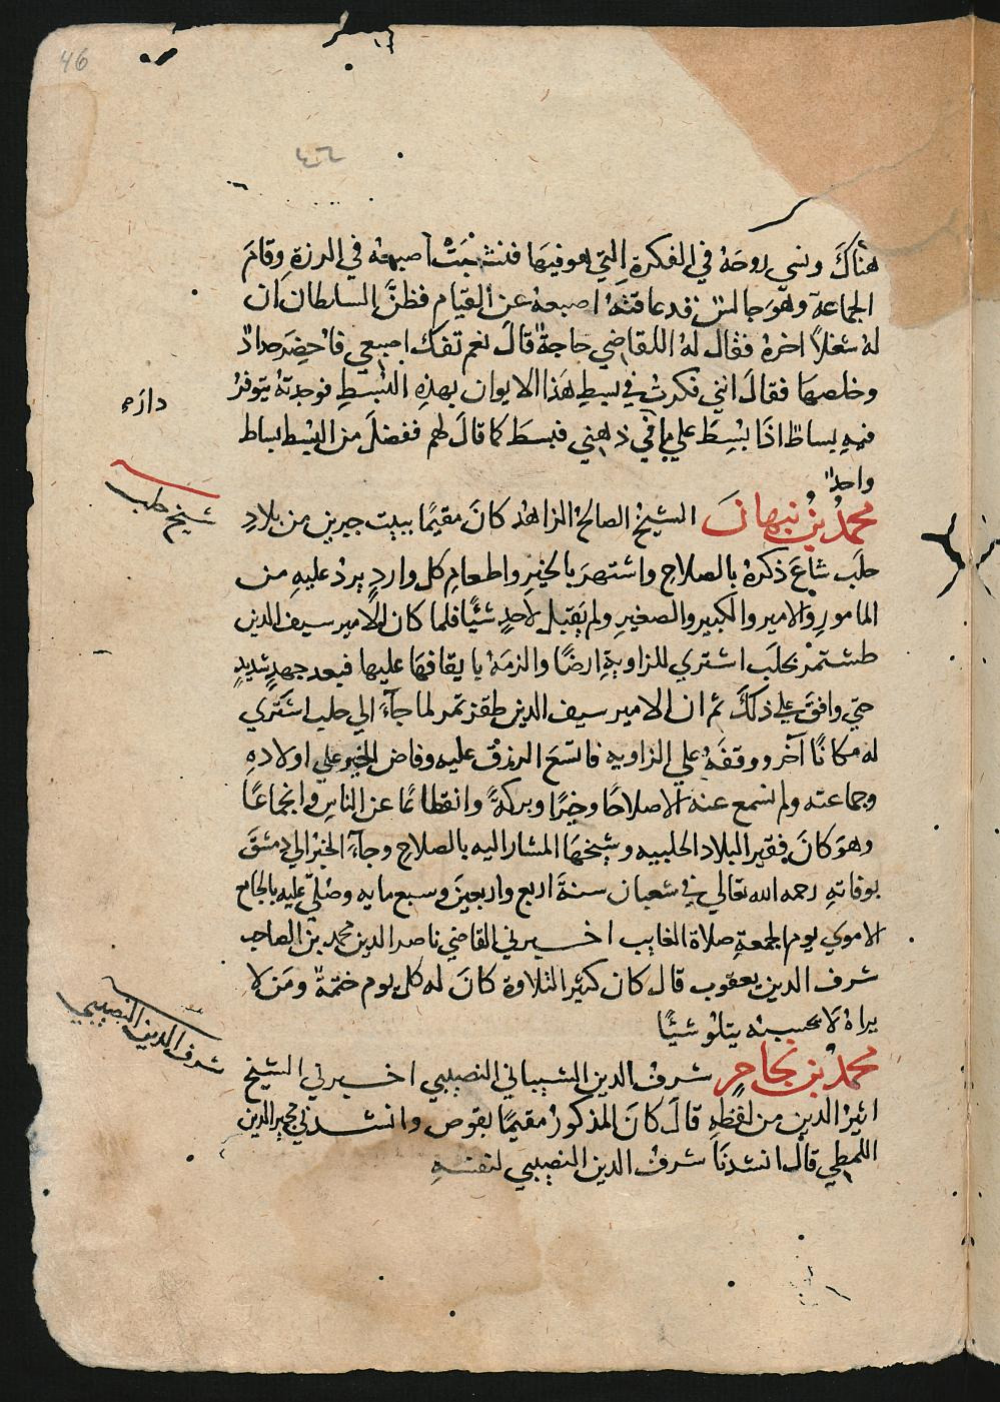 46
هناكَ ونسي روحَهُ في الفكرةِ التي هو فيهَا فنشبَتْ اصبعه في الرزةِ وقامَ
الجماعة وهوَ جالسٌ قد عاقتهُ اصبعهُ عن القيام فظنَّ السلطان ان
لهُ شغلاً اخرهُ فقال لهُ اللقاضي حاجةٌ قالَ نعم تفك اصبعي فاحضرَ حدادٌ
وخلصهَا فقالَ انني فكرتُ في بسطِ هَذا الايوان بهذِه البُسطِ فوجدتهُ يتوفرُ
فيهِ بساطٌ اذَا بُسِطَ علي ما في ذهني فبسطَ كما قالَ لهم ففضلَ من البسط بساط
واحدٌ
محمدُ بنُ نبهانَ الشيخُ الصالحُ الزاهدُ كانَ مقيمًا ببيت جبرين من بلادِ
شيخ حلب
حلَب شاعَ ذكرهُ بالصلاحِ واشتهرَ بالخيرِ واطعامِ كل واردٍ يردُ عليهِ من
المامورِ والامير والكبير والصغيرِ ولم يَقبل لاحدٍ شيًا فلما كان الامير سيف الدين
طشتمرْ بحلَب اشتري للزاويةِ ارضًا والزمهُ بايقافهَا عليها فبعد جهدٍ شديدٍ
حتي وافق علي ذلكَ ثم ان الامير سيف الدين طقزتمر لما جآءَ الي حلب اشتَري
له مكانًا آخر ووقفَهُ علي الزاويه فاتسعَ الرزقُ عليه وفاض الخير علي اولادهِ
وجماعته ولم نسمع عنه الاصلاحًا وخيرًا وبركةً وانقطاعًا عن الناسِ وانجماعًا
وهوَ كانَ فقير البلاد الحلبيه وشيخهَا المشار اليه بالصلاح وجآءَ الخبرُ الي دمشقَ
بوفاتهِ رحمه الله تعالي في شعبان سنةَ اربع واربعينَ وسبعمايه وصُليّ عليه بالجامع
الاموي يوم الجمعةِ صلاة الغايب اخبرني القاضي ناصر الدين محمد بن الصاحب
شرف الدين يعقوب قال كان كثير التلاوة كانَ له كل يوم ختمةٌ ومَن لا
يراهُ لا يحسبه يتلو شيًا
شرف الدين النصيبي
محمدُ بن نجاحٍ شرفُ الدين الشيباني النصيبي اخبرني الشيخ
اثيرُ الدين من لفظهِ قالَ كانَ المذكورُ مقيمًا بقوص وانشدني مجير الدين
اللمطي قال انشدنَا شرفُ الدين النصيبي لنفسهِ